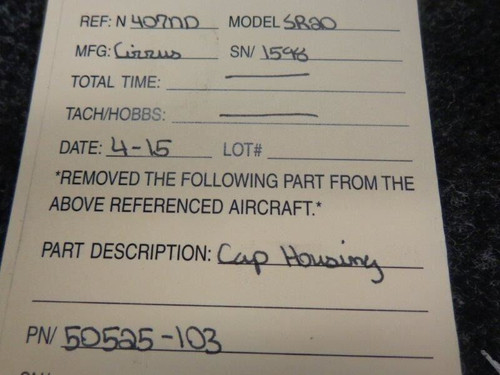 REF: N 407ND MODEL SR20
MFG: Cirrus SN/ 1598
TOTAL TIME:
TACH/HOBBS:
DATE: 4-15 LOT#
*REMOVED THE FOLLOWING PART FROM THE
ABOVE REFERENCED AIRCRAFT.*
PART DESCRIPTION: Cap Housing
PN/ 50525-103